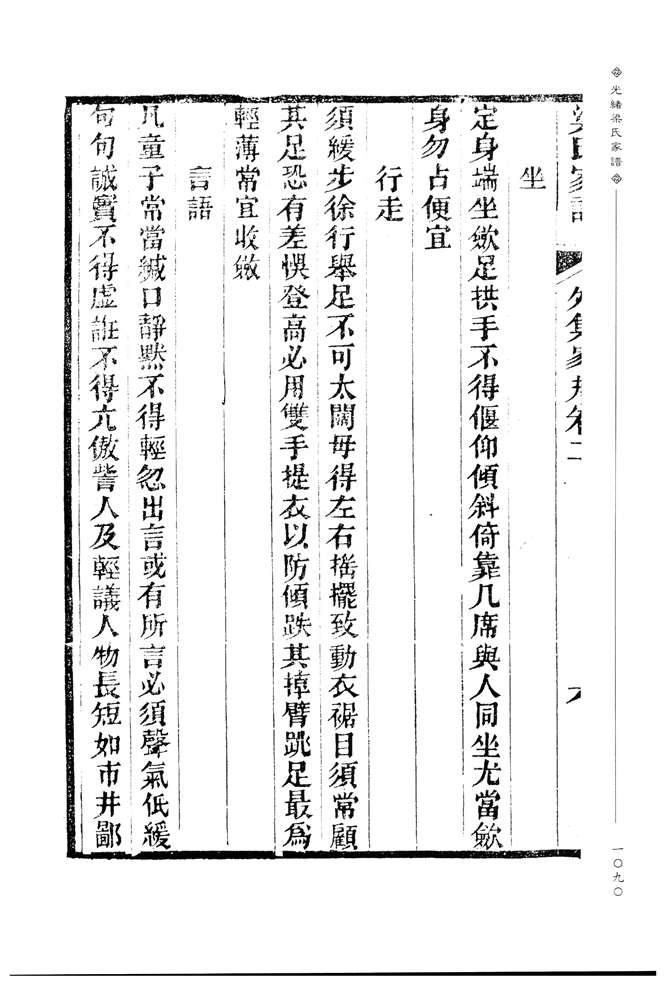 光緒梁氏家譜
一〇九〇
梁氏家譜
外集家規卷二
坐
定身端坐歛足拱手不得偃仰傾斜倚靠几席與人同坐尤當歛
身勿占便宜
行走
須緩步徐行舉足不可太闊毋得左右搖擺致動衣裾目須常顧
其足恐有差悞登高必用雙手提衣以防傾跌其掉臂跳足最爲
輕薄常宜收斂
言語
凡童子常當緘口靜默不得輕忽出言或有所言必須聲氣低緩
句句誠實不得虛誑不得亢傲訾人及輕議人物長短如市井鄙